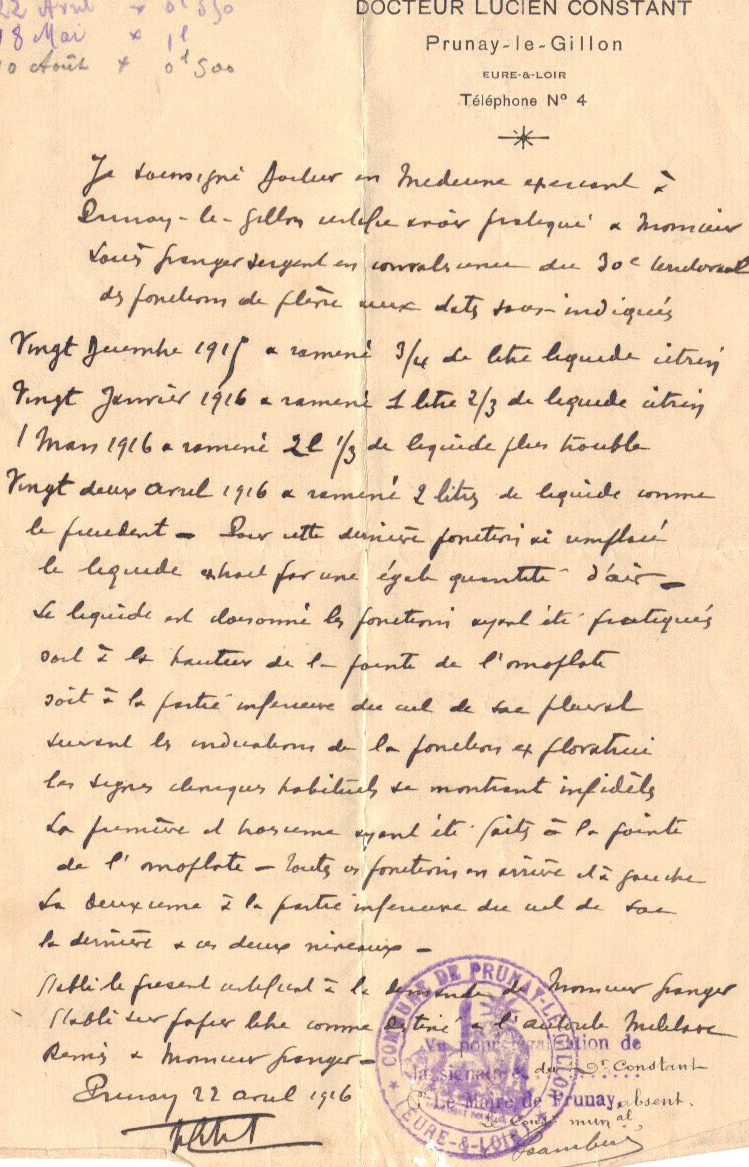 22 Avril x 0l 550
18 Mai x 1l
10 Août x 0l 500
DOCTEUR LUCIEN CONSTANT
Prunay-le-Gillon
EURE-&-LOIR
Téléphone N° 4
Je soussigné Docteur en Medecine exercant à
Prunay-le-Gillon certifie avoir pratiqué a Monsieur
Louis Granger sergent en convalescence du 30e territorial
des ponctions de plèvre aux dates sous-indiqués
Vingt Decembre 1915 a ramené 3/4 de litre liquide citrin
Vingt Janvier 1916 a ramené 1 litre 2/3 de liquide citrin
1 Mars 1916 a ramené 2l 1/3 de liquide plus trouble
Vingt deux avril 1916 a ramené 2 litres de liquide comme
le precedent - Pour cette dernière ponction ai remplacé
le liquide extrait par une égale quantité d'air -
Le liquide est cloisonné les ponctions ayant été pratiqués
soit à la hauteur de la pointe de l'omoplate
soit à la partie inferieure du cul de sac pleural
suivant les indications de la ponction exploratrice
les signes cliniques habituels se montrant infidèles
La première et troisieme ayant été faits à la pointe
de l'omoplate - toutes ces ponctions en arrière et à gauche
La deuxieme à la partie inferieure du cul de sac
la dernière a ces deux niveaux -
Etabli le present certificat à la demande de Monsieur Granger
Etabli sur papier libre comme destiné a l'autorité Militaire
Remis a Monsieur Granger -
Prunay 22 avril 1916
COMMUNE DE PRUNAY-LE-GILLON
(EURE-&-LOIR)
Vu pour légalisation de
la signature du Dr Constant
Pr Le Maire de Prunay, absent.
Le Cons. munal